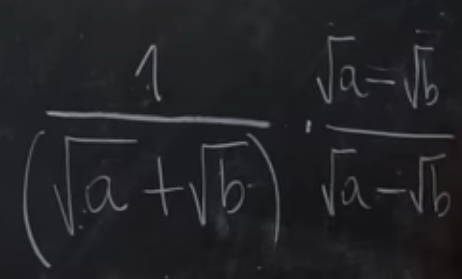 1/(√a + √b) · (√a = √b)/(√a - √b)